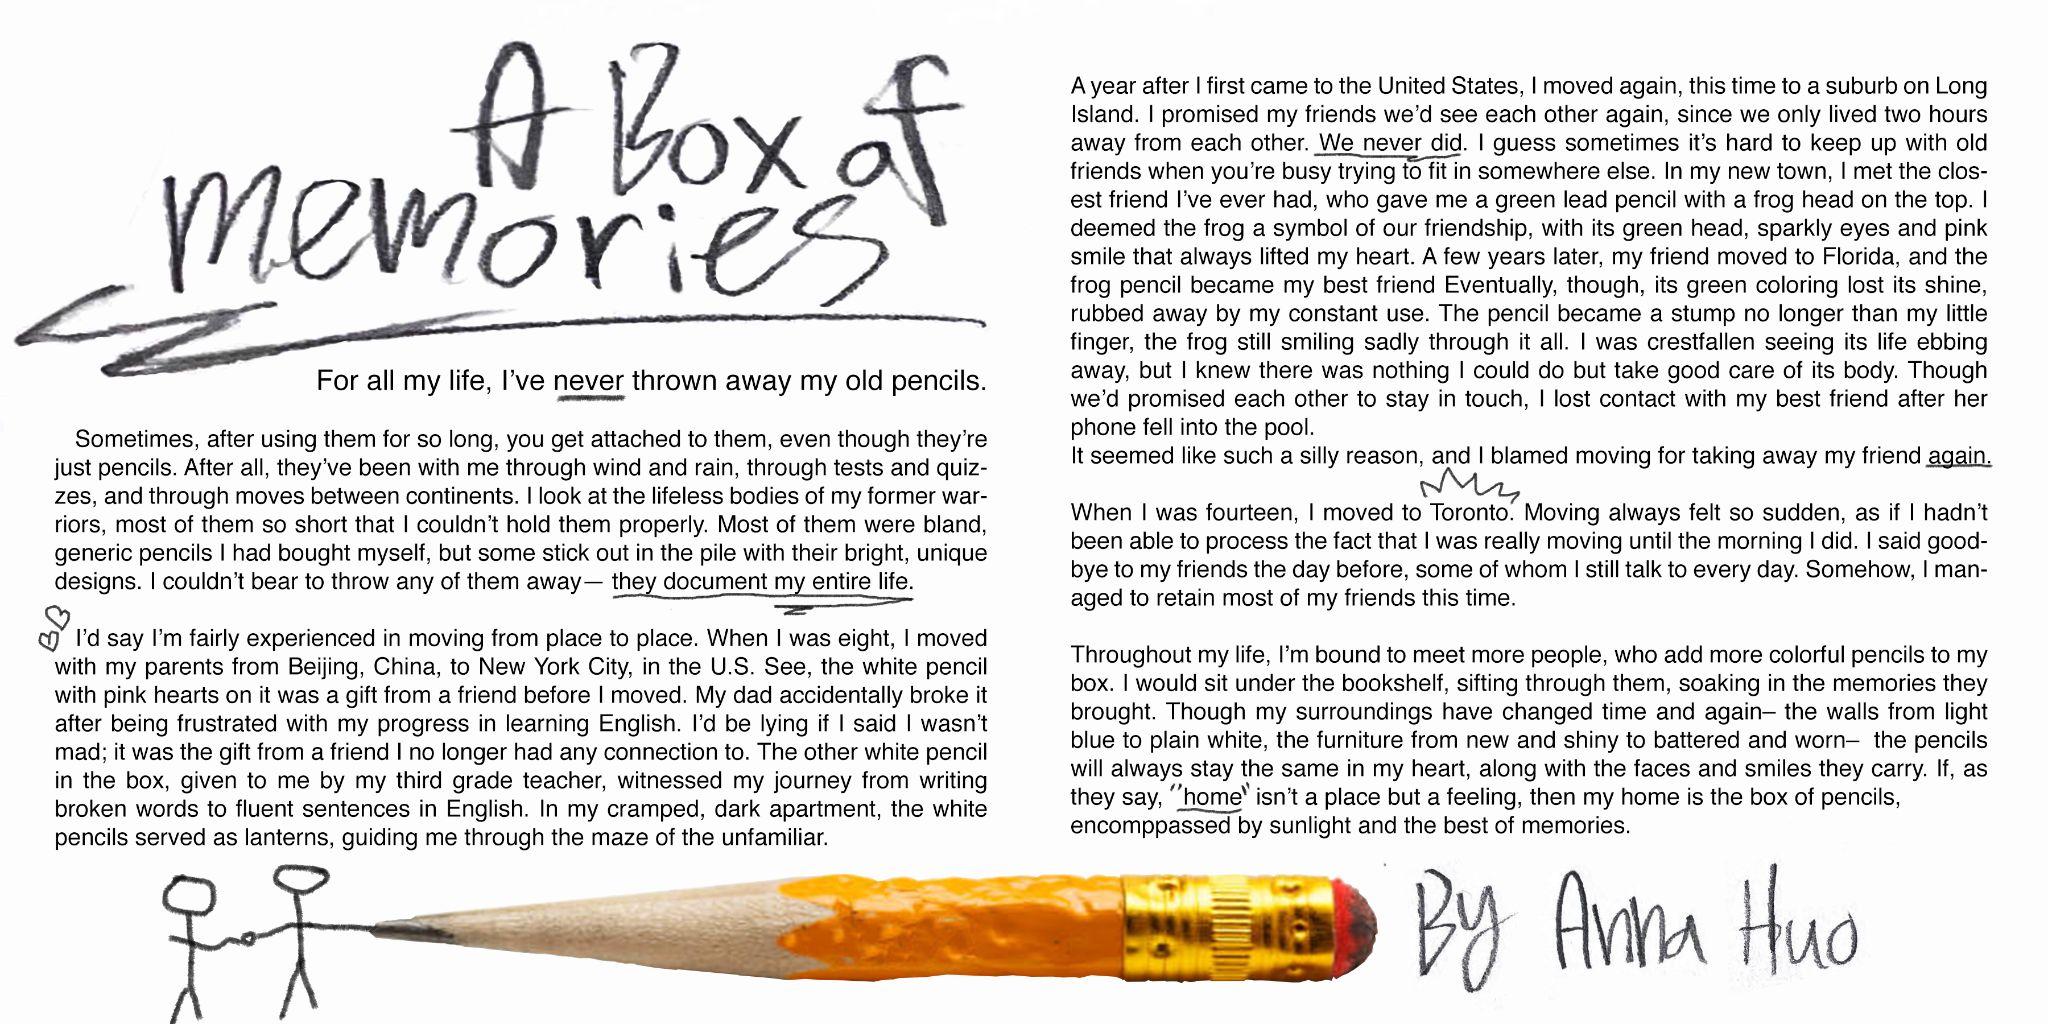 A Box of
memories
For all my life, I've never thrown away my old pencils.
Sometimes, after using them for so long, you get attached to them, even though they're
just pencils. After all, they've been with me through wind and rain, through tests and quiz-
zes, and through moves between continents. I look at the lifeless bodies of my former war-
riors, most of them so short that I couldn't hold them properly. Most of them were bland,
generic pencils I had bought myself, but some stick out in the pile with their bright, unique
designs. I couldn't bear to throw any of them away— they document my entire life.
I'd say I'm fairly experienced in moving from place to place. When I was eight, I moved
with my parents from Beijing, China, to New York City, in the U.S. See, the white pencil
with pink hearts on it was a gift from a friend before I moved. My dad accidentally broke it
after being frustrated with my progress in learning English. I'd be lying if I said I wasn't
mad; it was the gift from a friend I no longer had any connection to. The other white pencil
in the box, given to me by my third grade teacher, witnessed my journey from writing
broken words to fluent sentences in English. In my cramped, dark apartment, the white
pencils served as lanterns, guiding me through the maze of the unfamiliar.
A year after I first came to the United States, I moved again, this time to a suburb on Long
Island. I promised my friends we'd see each other again, since we only lived two hours
away from each other. We never did. I guess sometimes it's hard to keep up with old
friends when you're busy trying to fit in somewhere else. In my new town, I met the clos-
est friend I've ever had, who gave me a green lead pencil with a frog head on the top. I
deemed the frog a symbol of our friendship, with its green head, sparkly eyes and pink
smile that always lifted my heart. A few years later, my friend moved to Florida, and the
frog pencil became my best friend Eventually, though, its green coloring lost its shine,
rubbed away by my constant use. The pencil became a stump no longer than my little
finger, the frog still smiling sadly through it all. I was crestfallen seeing its life ebbing
away, but I knew there was nothing I could do but take good care of its body. Though
we'd promised each other to stay in touch, I lost contact with my best friend after her
phone fell into the pool.
It seemed like such a silly reason, and I blamed moving for taking away my friend again.
When I was fourteen, I moved to Toronto. Moving always felt so sudden, as if I hadn't
been able to process the fact that I was really moving until the morning I did. I said good-
bye to my friends the day before, some of whom I still talk to every day. Somehow, I man-
aged to retain most of my friends this time.
Throughout my life, I'm bound to meet more people, who add more colorful pencils to my
box. I would sit under the bookshelf, sifting through them, soaking in the memories they
brought. Though my surroundings have changed time and again– the walls from light
blue to plain white, the furniture from new and shiny to battered and worn– the pencils
will always stay the same in my heart, along with the faces and smiles they carry. If, as
they say, "home" isn't a place but a feeling, then my home is the box of pencils,
encomppassed by sunlight and the best of memories.
By Anna Huo